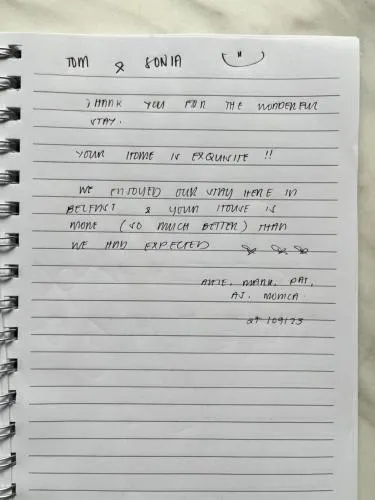 TOM & SONIA
THANK YOU FOR THE WONDERFUL
STAY.
YOUR HOME IS EXQUISITE !!
WE ENJOYED OUR STAY HERE IN
BELFAST & YOUR HOUSE IS
MORE (SO MUCH BETTER) THAN
WE HAD EXPECTED
MARK, PAT,
AJ, MONICA